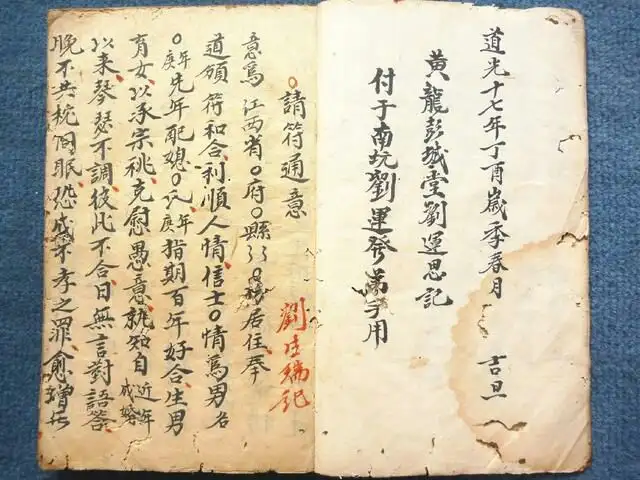 道光十七年丁酉歲季春月 吉旦
黄龍彭城堂劉運思記
付于南坑劉運發弟子用
○請符通意
劉 記
意爲江西省○府○縣 ○ 居住奉
道頒符和合利順人情信士○情爲男名
○年庚先年配媳○氏年庚指期百年好合生男
育女以承宗祧克慰愚意孰知自近年成婚
以来琴瑟不調彼此不合日無言對語答
晚不共枕同眠恐成不孝之罪愈增